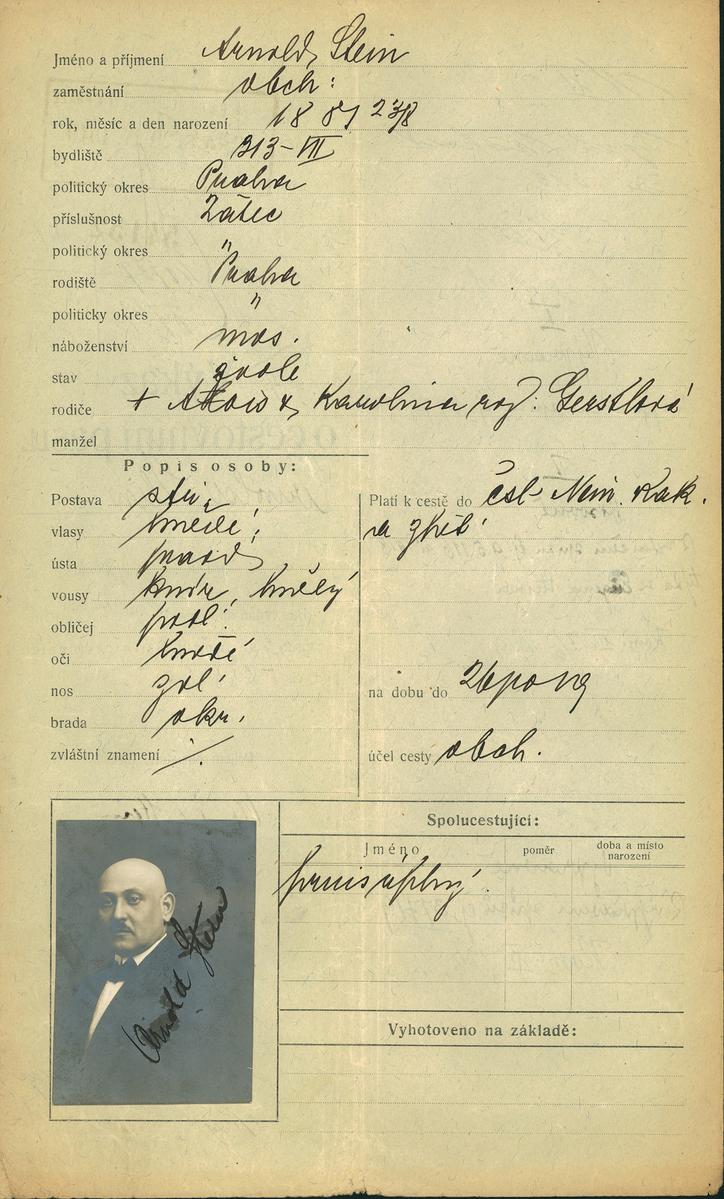 Jméno a příjmení Arnold Stein
zaměstnání obch:
rok, měsíc a den narození 18 81 23/8
bydliště 313-VII
politický okres Praha
příslušnost Žatec
politický okres "
rodiště Praha
politicky okres "
náboženství mos.
stav
rodiče + Alois & Karolina roz: Gerstlová
manžel
Popis osoby:
Postava stř:
vlasy hnědé;
ústa
vousy knír, hnědý
obličej podl.
oči hnědé
nos
brada okr.
zvláštní znamení ./.
Platí k cestě do čsl- Něm. Rak.
a zpět
na dobu do
účel cesty obch.
Spolucestující:
Jméno poměr doba a místo narození
Vyhotoveno na základě:
Arnold Stein